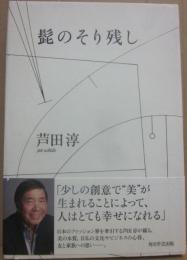 髭のそり残し
芦田淳
jun ashida
「少しの創意で“美”が
生まれることによって、
人はとても幸せになれる」
日本のファッション界を牽引する芦田淳が綴る、
美の本質、日本の文化やビジネスの心得、
友と家族への思い――。
毎日新聞出版